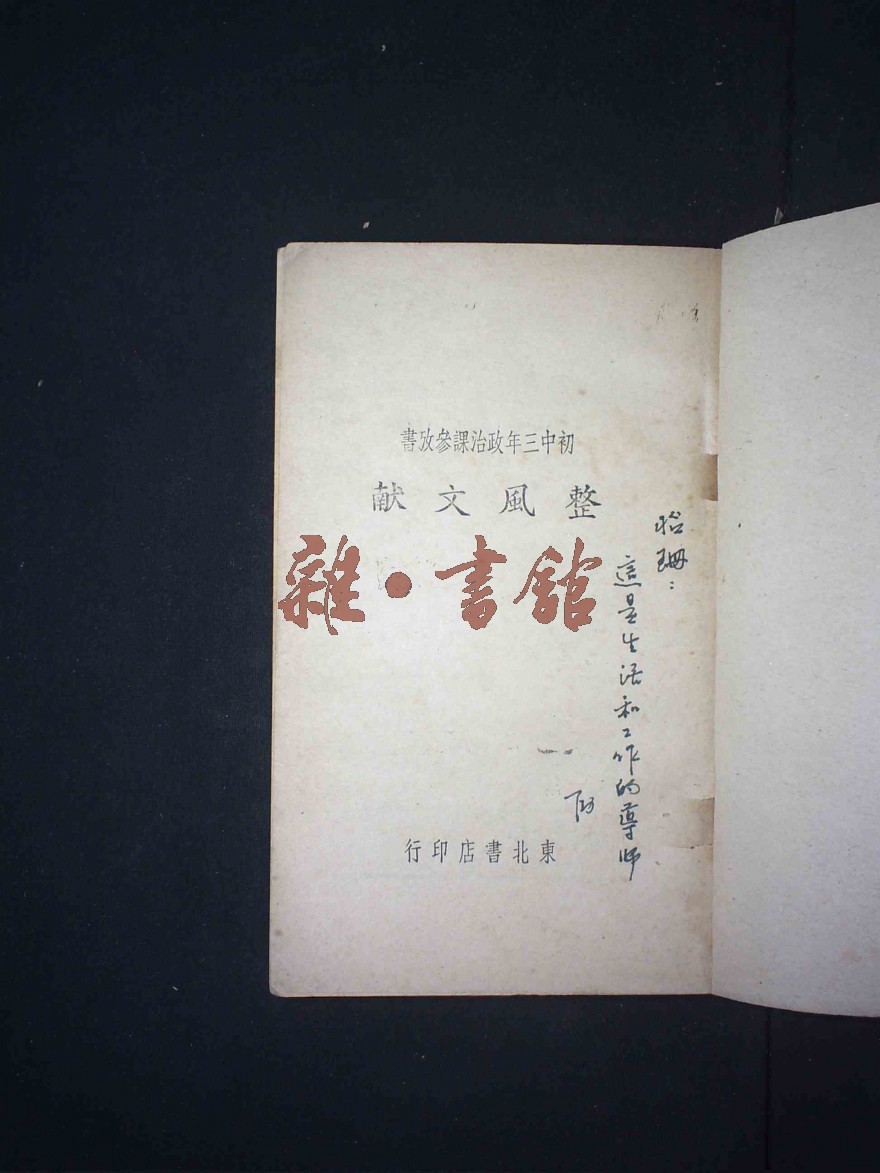 初中三年政治課參攷書
整風文献
雜·書館
怡珊：
這是生活和工作的導師
東北書店印行